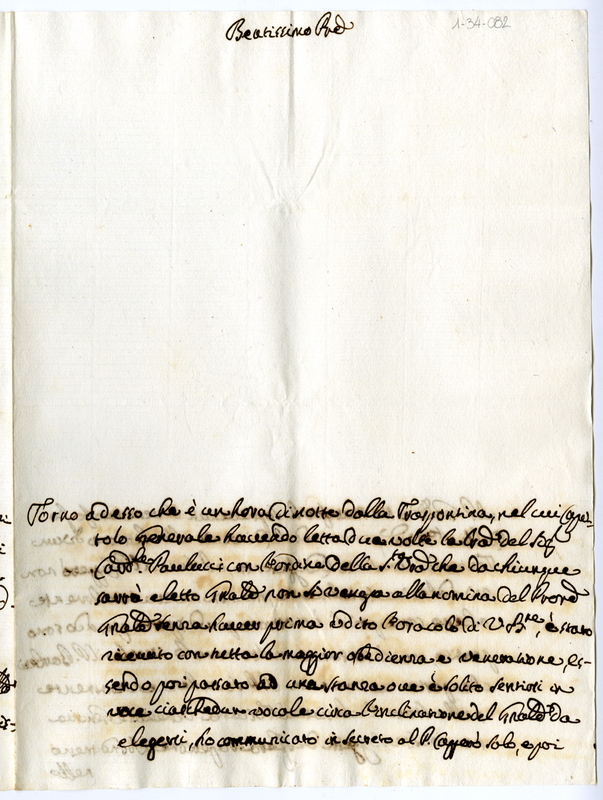 Beatissimo Pre
1-34-082
Torno adesso che è un hora di notte dalla Traspontina, nel cui Capi-
tolo Generale havendo letta due volte la del Sig
Card.le Paulucci con l'ordine della che da chiunque
sarrà eletto Gñale non si venga alla nomina del
Gñale senza haver prima udito l'oracolo di V. è stato
ricevuto con tutta la maggior obedienza e veneratione, es-
sendo poi passato ad una stanza ove è solito sentirsi in
voce ciaschedun vocale circa l'inclinatione del Gñale da
elegersi, ho communicato in secreto al P. solo, e poi